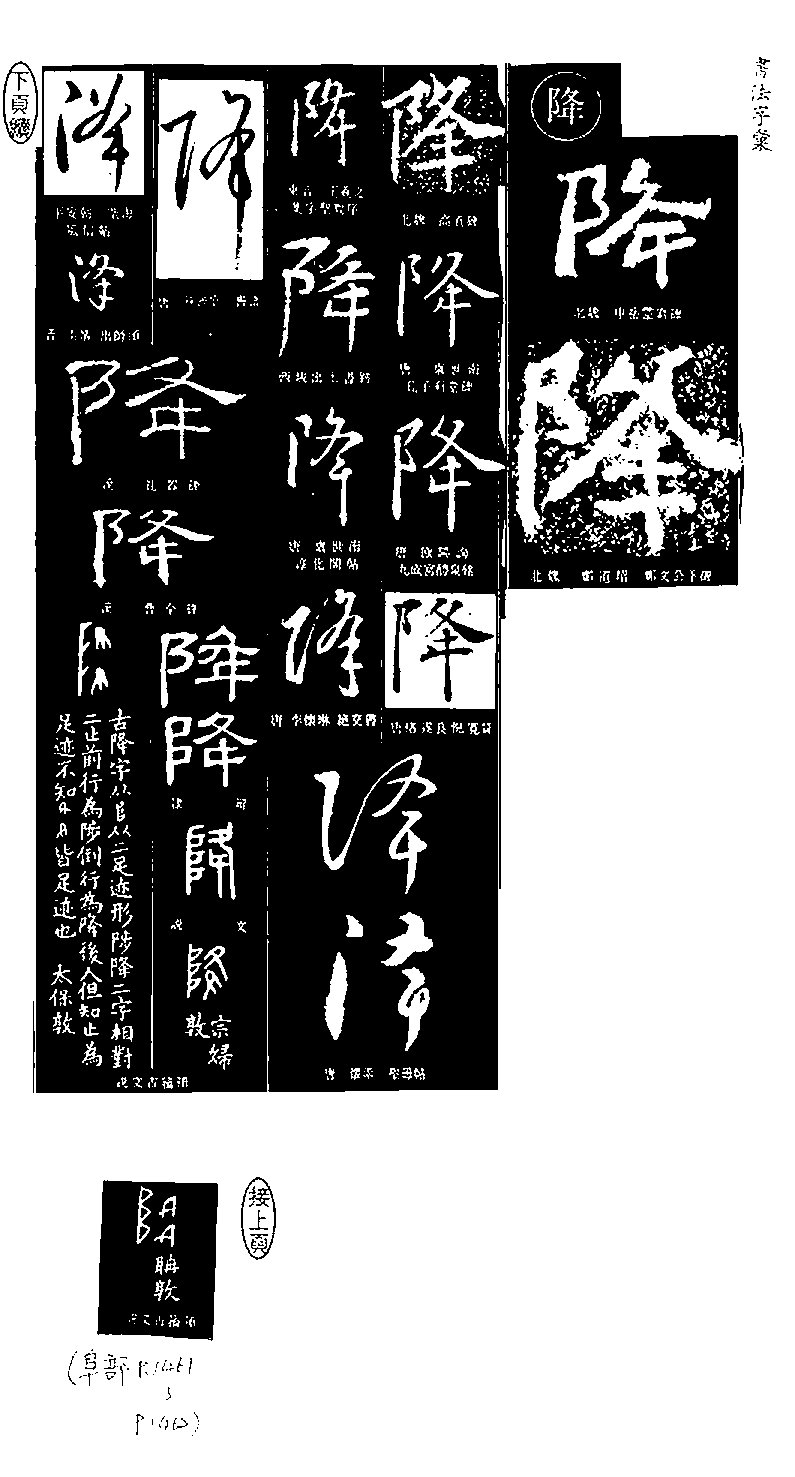 書法字彙
降
降
北魏 中岳嵩高碑
降
北魏 鄭道昭 鄭文公下碑
降
北魏 高貞碑
降
唐 虞世南
孔子廟堂碑
降
唐 歐陽詢
九成宮醴泉銘
降
唐褚遂良倪寬贊
降
東晉 王羲之
集字聖教序
降
西域出土書錄
降
唐 虞世南
淳化閣帖
降
唐 李懷琳 絕交書
降
降
唐 懷素 聖母帖
降
降
降
降
隸辨
降
說文
降
宗婦
敦
下頁續
降
平安朝 空海
風信帖
降
降
漢 孔宙碑
降
漢 曹全碑
降
古降字从𨸏从二足迹形陟降二字相對
二止前行為陟倒行為降後人但知止為
足迹不知皆足迹也 太保敦
說文古籀補
接上頁
降
敦
說文古籀補
(阜部 P.1461
P.1462)